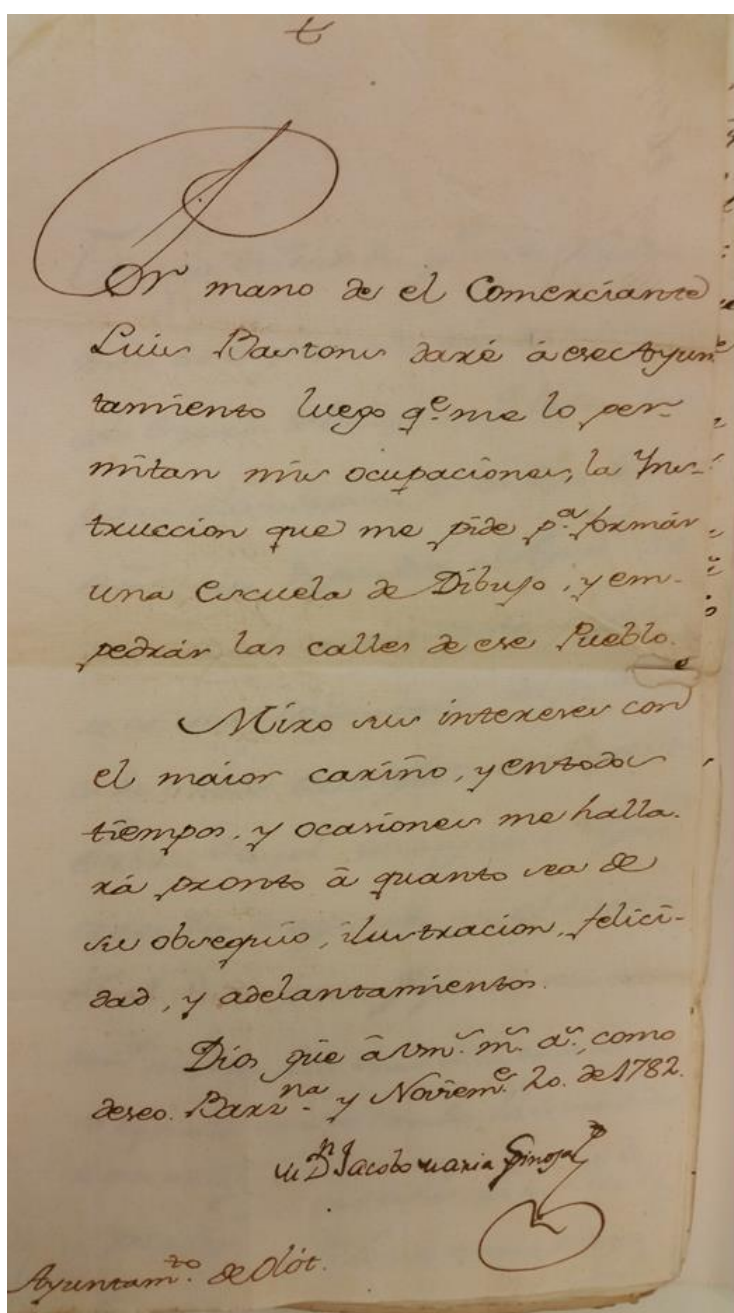 Por mano de el Comerciante
Luis Bastons daré á ese Ayun
tamiento luego q.e me lo per-
mitan mis ocupaciones, la Yns-
truccion que me pide p.a formár
una escuela de Dibujo, y em-
pedrár las calles de ese Pueblo.
Miro sus intereses con
el maior cariño, y en todos
tiempos, y ocasiones me halla-
rá pronto á quanto sea de
su obsequio, ilustracion, felici-
dad, y adelantamientos.
Dios güe á vm.s m.s a.s, como
deseo. Barz.na y Noviem.e 20. de 1782.
D.n Jacobo maria Spinosa
Ayuntam.to de Olót.